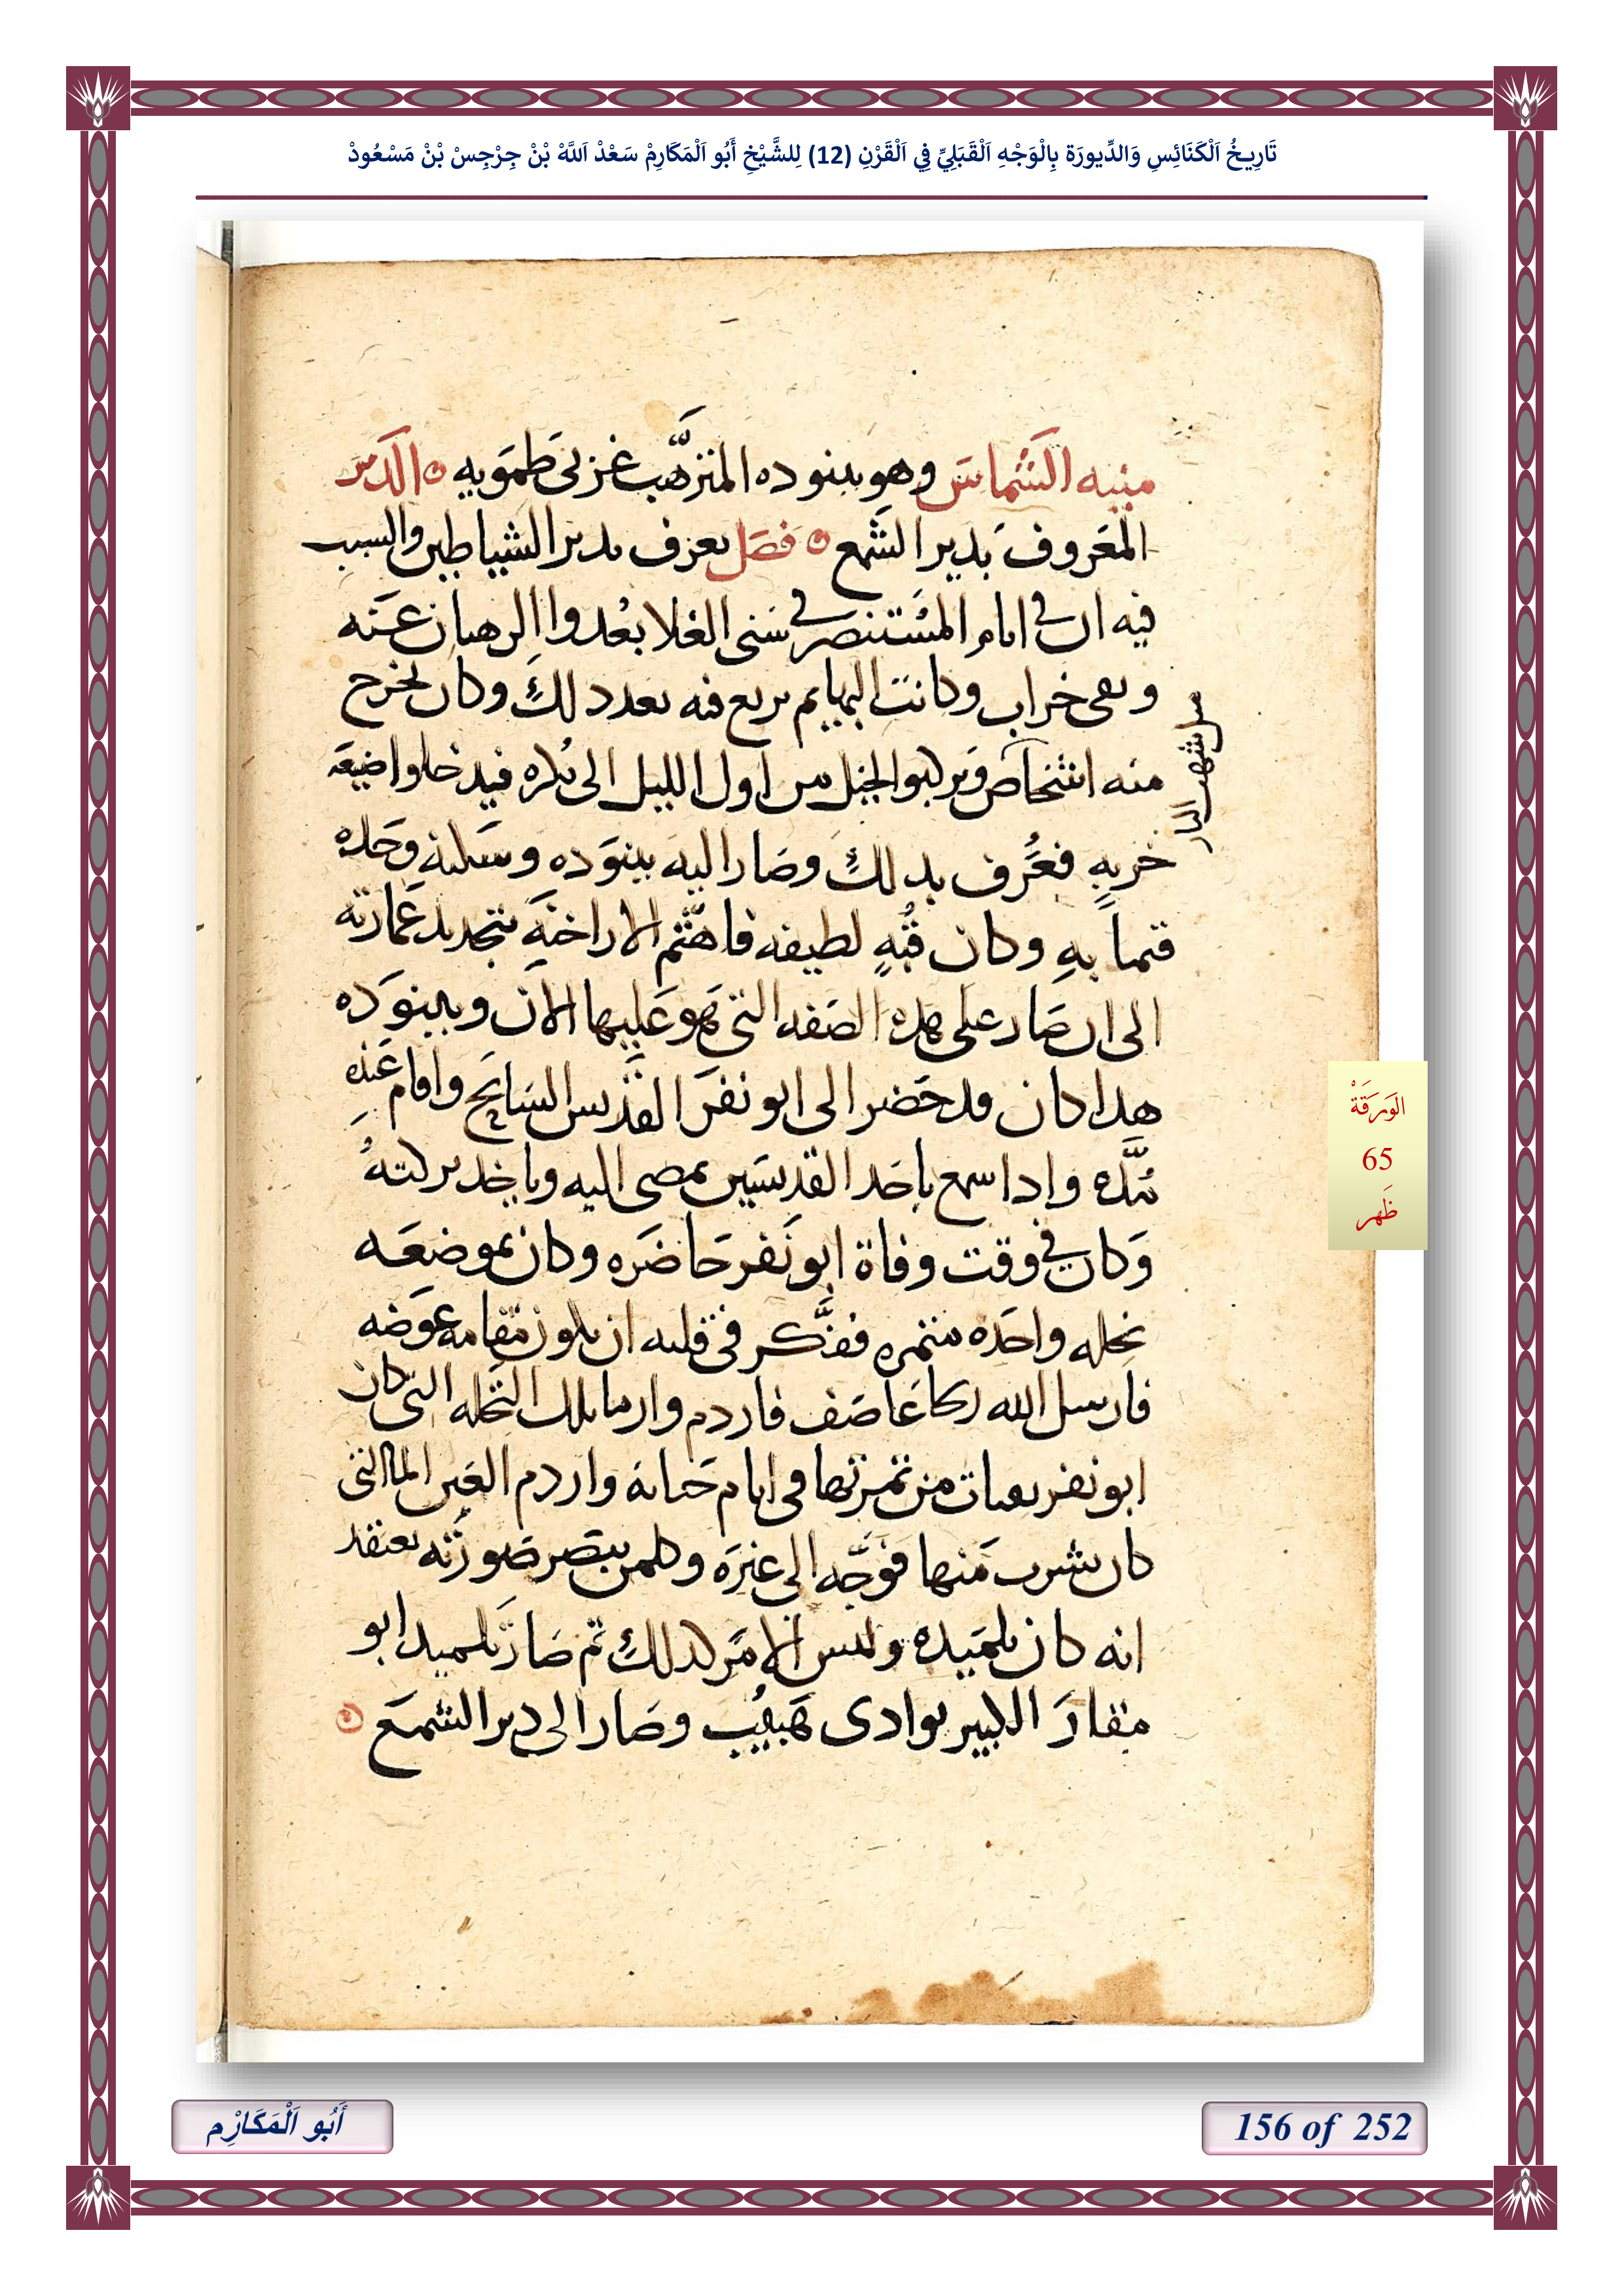 تَارِيخُ اَلْكَنَائِسِ وَالدِّيورَة بِالْوَجْهِ اَلْقَبَلِيِّ فِي اَلْقَرْنِ (12) لِلشَّيْخِ أَبُو اَلْمَكَارِمْ سَعْدْ اَللَّهْ بْنْ جِرْجِسْ بْنْ مَسْعُودْ
منيه الشماس وهو ببنوده المترهب غربى طمويه الدير
المعروف بدير الشمع فصل يعرف بدير الشياطين والسبب
فيه ان في ايام المستنصر في سنى الغلا بعدوا الرهبان عنه
وبقى خراب وكانت البهايم تربع فيه بعد ذلك وكان يخرج
منه اشخاص ويركبوا الخيل من اول الليل الى بكره فيدخلوا ضيعه
خربه فعرف بدلك وصار اليه ببنوده وسكنه وحده
قتما به وكان قبه لطيفه فاهتم الاراخنه بتجديد عمارته
الى ان صار على هده الصفه التي هو عليها الان وببنوده
هدا كان قد حضر الى ابو نفر القديس السايح واقام عنده
مده وادا سمع باحد القديسين يمضى اليه وياخد بركته
وكان في وقت وفاة ابو نفر حاضره وكان بموضعه
نخله واحده متمره ففكر في قلبه ان يكون مقامه عوضه
فارسل الله ركا عاصف فاردم وارما تلك النخله التي كان
ابو نفر يقتات من تمرتها في ايام حياته واردم العين الما التي
كان يشرب منها فتوجه الى غيره وكلمن يبصر صورته يعتقد
انه كان تلميده وليس الامر كدلك تم صار تلميد ابو
مقار الكبير بوادى هبيب وصار الى دير الشمع
الوَرَقَةْ
65
ظَهر
أَبُو اَلْمَكَارِْم
156 of 252